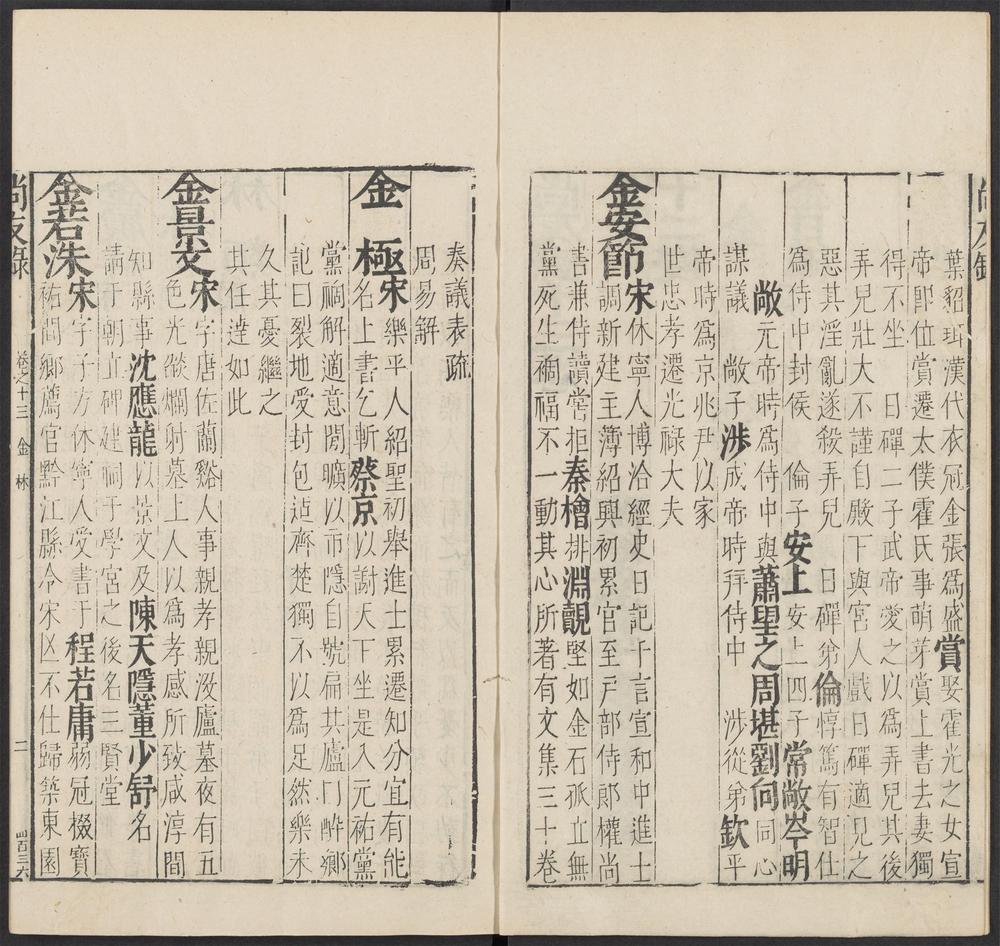 葉貂珥漢代衣冠金張為盛賞娶霍光之女宣
帝即位賞遷太僕霍氏事萌芽賞上書去妻獨
得不坐 日磾二子武帝愛之以為弄兒其後
弄兒壯大不謹自殿下與宮人戲日磾適見之
惡其淫亂遂殺弄兒 日磾弟倫惇篤有智仕
為侍中封侯 倫子安上安上四子常敞岑明
敞元帝時為侍中與蕭望之周堪劉向同心
謀議 敞子涉成帝時拜侍中 涉從弟欽平
帝時為京兆尹以家
世忠孝遷光祿大夫
金安節宋休寧人博洽經史日記千言宣和中進士
調新建主薄紹興初累官至戶部侍郎權尚
書兼侍讀常拒秦檜排淵覿堅如金石孤立無
黨死生禍福不一動其心所著有文集三十卷
奏議表疏
周易解
金 極宋樂平人紹聖初舉進士累遷知分宜有能
名上書乞斬蔡京以謝天下坐是入元祐黨
黨禍解適意閒曠以市隱自號扁其廬曰醉鄉
記曰裂地愛封包造齊楚獨不以為足然樂未
久其憂繼之
其任達如此
金景文宋字唐佐蘭谿人事親孝親沒廬墓夜有五
色光燄爛射墓上人以為孝感所致咸淳間
知縣事沈應龍以景文及陳天隱董少舒名
請于朝立碑建祠于學宮之後名三賢堂
金若洙宋字子方休寧人受書于程若庸弱冠檄寶
祐間鄉薦官黔江縣令宋亡不仕歸築東園
尚友錄 卷之十三 金 林 二 四百三六